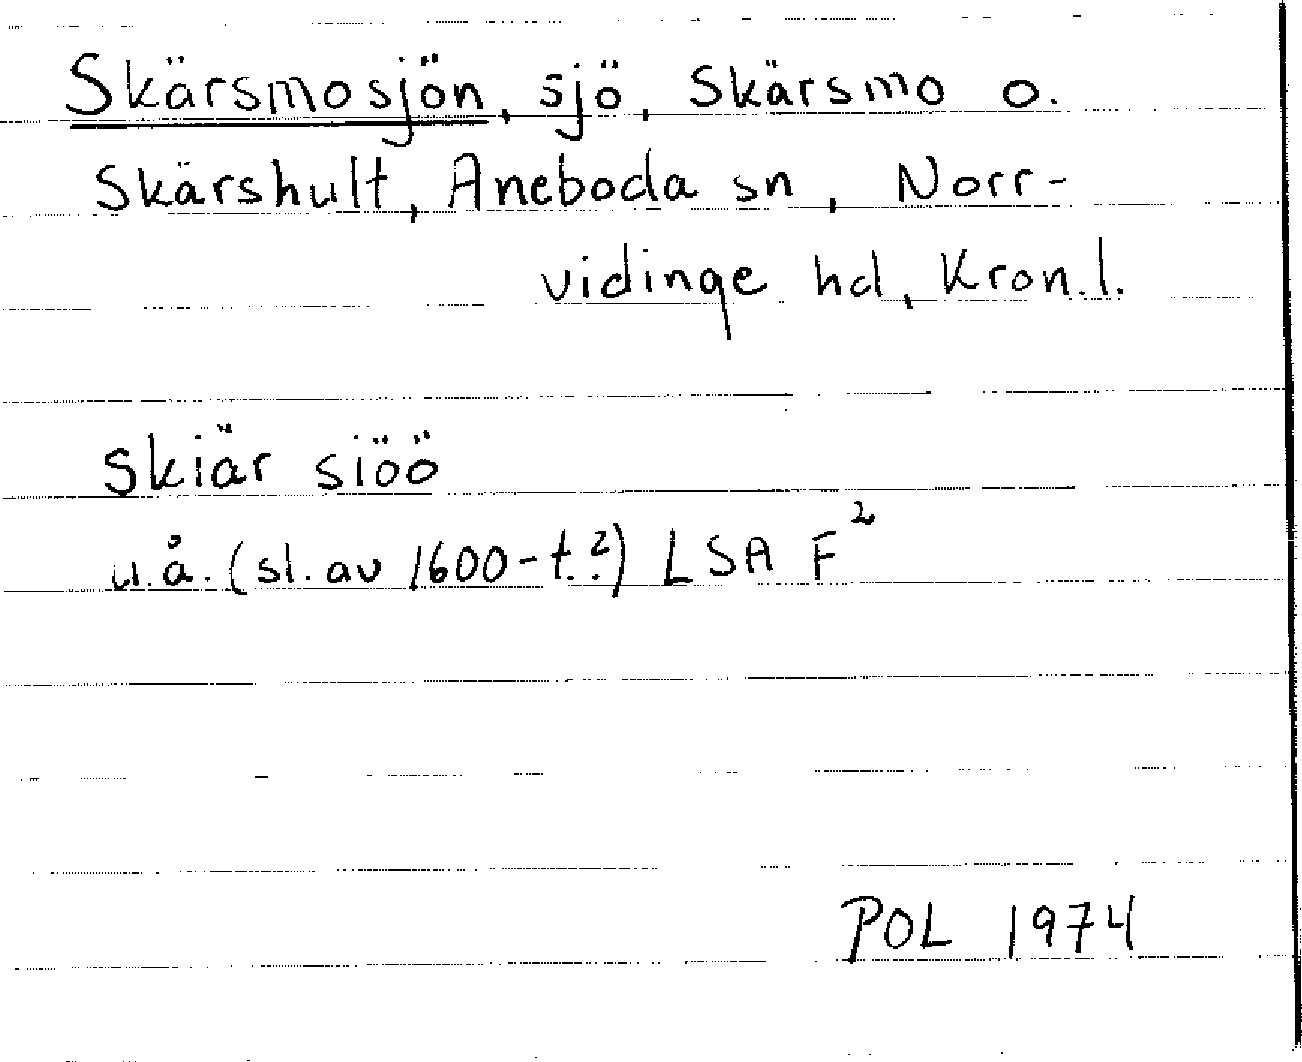 Skärsmosjön, sjö, Skärsmo o.
Skärshult, Aneboda sn, Norr-
vidinge hd, Kron.l.
Skiär siöö
u.å. (sl. av 1600-t.?) LSA F²
POL 1974